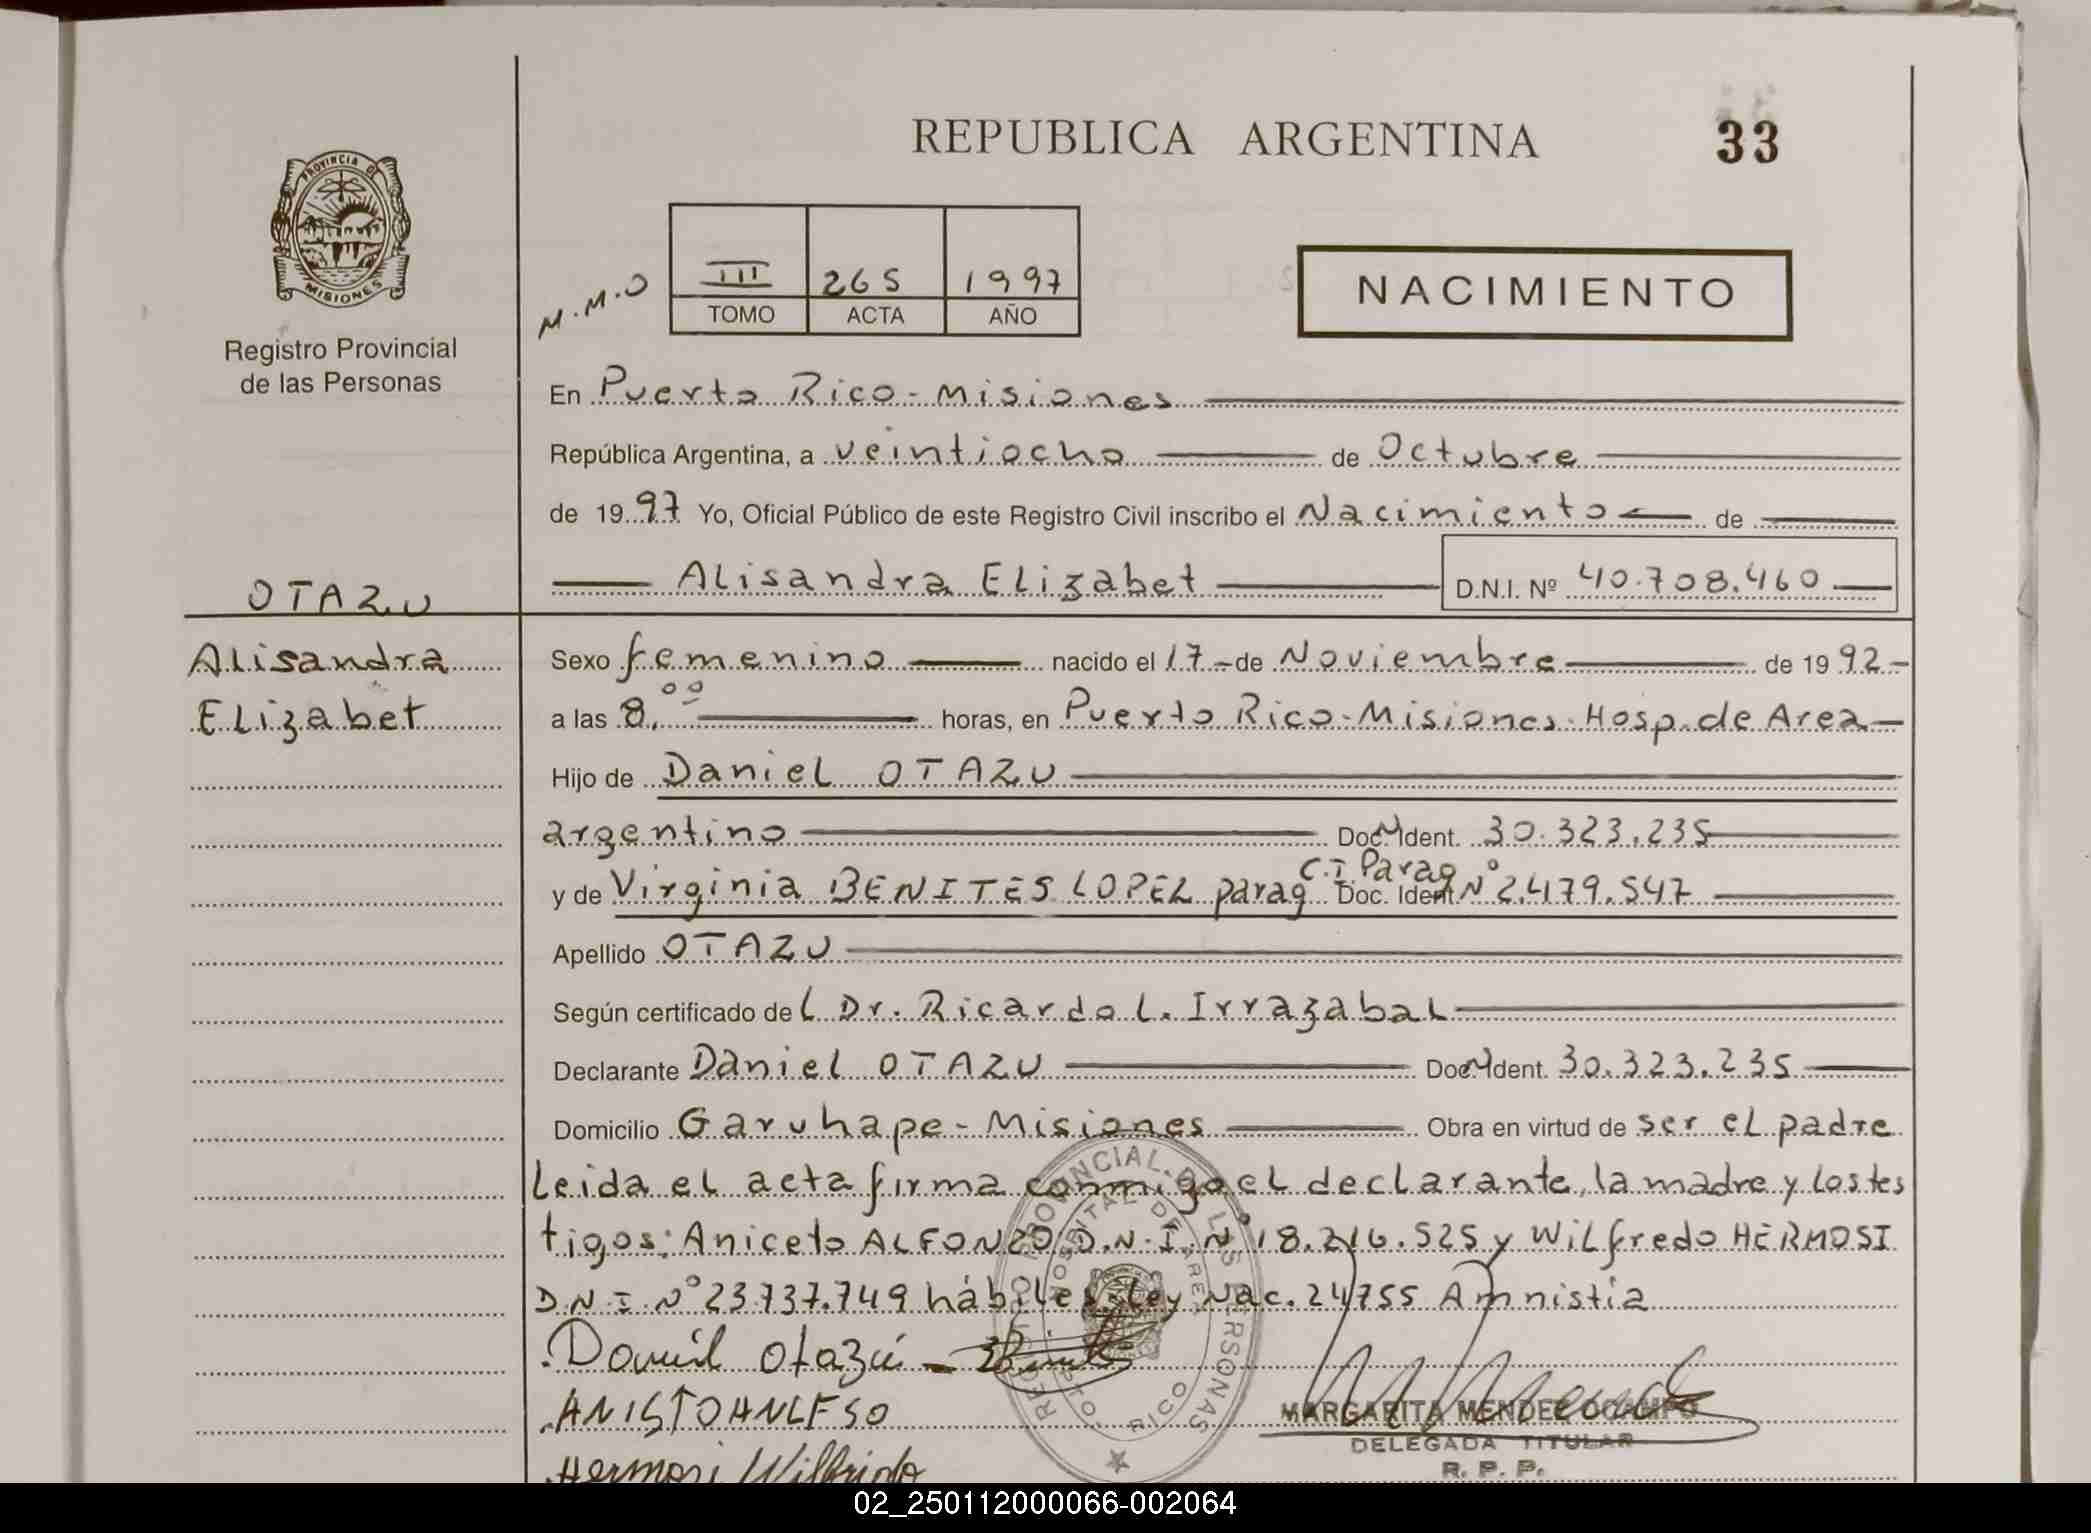 REPUBLICA ARGENTINA
33
PROVINCIA DE
MISIONES
Registro Provincial
de las Personas
M.M.O
III 265 1997
TOMO ACTA AÑO
NACIMIENTO
En Puerto Rico - Misiones
República Argentina, a veintiocho de Octubre
de 1997 Yo, Oficial Público de este Registro Civil inscribo el Nacimiento de
Alisandra Elizabet D.N.I. Nº 40.708.460
OTAZU
Alisandra
Elizabet
Sexo femenino nacido el 17 - de Noviembre de 1992 -
a las 8,00 horas, en Puerto Rico - Misiones - Hosp. de Area
Hijo de Daniel OTAZU
argentino Doc. Ident. 30.323.235
C.I. Parag
y de Virginia BENITES LOPEZ parag Doc. Ident. Nº 2.479.547
Apellido OTAZU
Según certificado del Dr. Ricardo L. Irrazabal
Declarante Daniel OTAZU Doc. Ident. 30.323.235
Domicilio Garuhape - Misiones Obra en virtud de ser el padre
leida el acta firma conmigo el declarante, la madre y los tes
tigos: Aniceto ALFONZO D.N.I. Nº 18.216.525 y Wilfredo HERMOSI
D.N.I Nº 23.737.749 hábiles. Ley Nac. 24755 Amnistia
Daniel Otazú
ANISTOANLFSO
Hermosi Wilfrido
REGISTRO PROVINCIAL DE LAS PERSONAS
HOSPITAL DE AREA
PTO. RICO
MARGARITA MENDEZ OCAMPO
DELEGADA TITULAR
R. P. P.
02_250112000066-002064